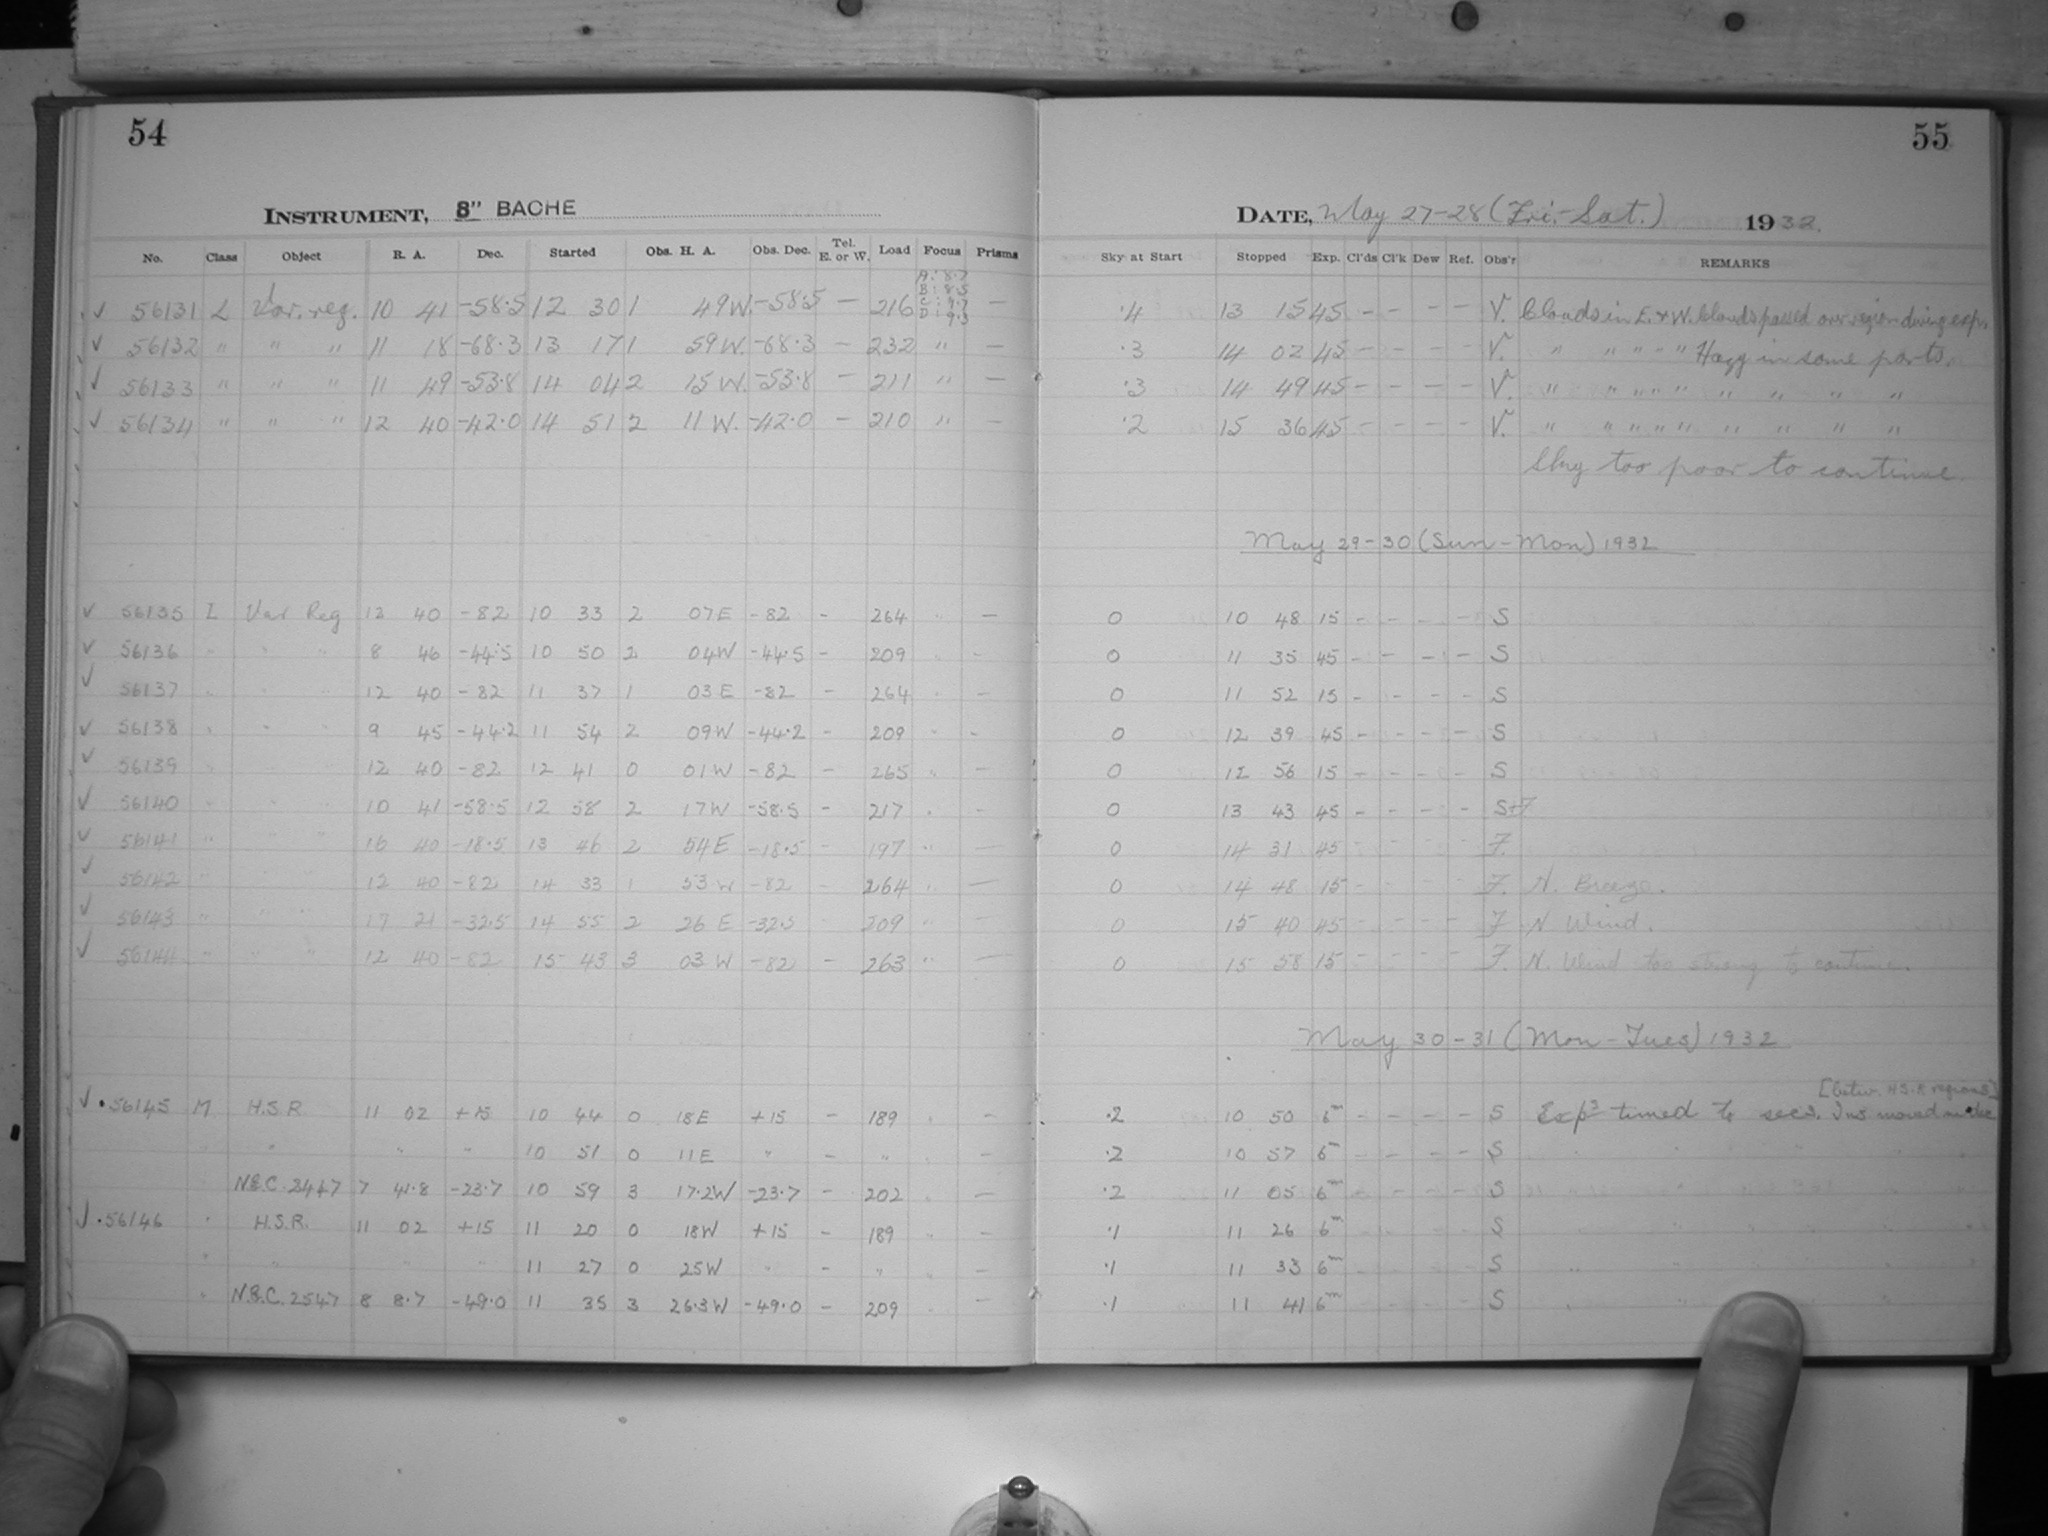 54
55
INSTRUMENT, 8" BACHE
DATE, May 27-28 (Fri.-Sat.) 1932.
No. Class Object R. A. Dec. Started Obs. H. A. Obs. Dec. Tel. E. or W. Load Focus Prisms Sky at Start Stopped Exp. Cl'ds Cl'k Dew Ref. Obs'r REMARKS
A: 8.7
B: 8.5
C: 9.7
D: 9.3
✓ 56131 L Var. reg. 10 41 -58.5 12 30 1 49W. -58.5 — 216 — .4 13 15 45 - - - - V. Clouds in E. & W. Clouds passed over region during exp.
✓ 56132 " " " 11 18 -68.3 13 17 1 59W. -68.3 — 232 " — .3 14 02 45 - - - - V. " " " " " Hazy in some parts.
✓ 56133 " " " 11 49 -53.8 14 04 2 15W. -53.8 — 211 " — .3 14 49 45 - - - - V. " " " " " " " " "
✓ 56134 " " " 12 40 -42.0 14 51 2 11W. -42.0 — 210 " — .2 15 36 45 - - - - V. " " " " " " " " "
Sky too poor to continue
May 29-30 (Sun-Mon) 1932
✓ 56135 L Var Reg 12 40 -82 10 33 2 07E -82 - 264 " — 0 10 48 15 - - - - S
✓ 56136 " " " 8 46 -44.5 10 50 2 04W -44.5 - 209 " - 0 11 35 45 - - - - S
✓ 56137 " " " 12 40 -82 11 37 1 03E -82 - 264 " - 0 11 52 15 - - - - S
✓ 56138 " " " 9 45 -44.2 11 54 2 09W -44.2 - 209 " - 0 12 39 45 - - - - S
✓ 56139 " " " 12 40 -82 12 41 0 01W -82 - 265 " - 0 12 56 15 - - - - S
✓ 56140 " " " 10 41 -58.5 12 58 2 17W -58.5 - 217 " - 0 13 43 45 - - - - S+F
✓ 56141 " " " 16 40 -18.5 13 46 2 54E -18.5 - 197 " — 0 14 31 45 - - - - F.
✓ 56142 " " " 12 40 -82 14 33 1 53W -82 - 264 " — 0 14 48 15 - - - - F. N. Breeze.
✓ 56143 " " " 17 21 -32.5 14 55 2 26E -32.5 - 209 " - 0 15 40 45 - - - - F N. Wind.
✓ 56144 " " " 12 40 -82 15 43 3 03W -82 - 263 " — 0 15 58 15 - - - - F. N. Wind too strong to continue.
May 30-31 (Mon-Tues) 1932
[betw. H.S.R regions]
✓ .56145 M H.S.R. 11 02 +15 10 44 0 18E +15 - 189 " - .2 10 50 6m - - - - S Exps timed to secs. Ins moved in dec
" " " " 10 51 0 11E " - " " - .2 10 57 6m - - - - S
N.G.C. 2447 7 41.8 -23.7 10 59 3 17.2W -23.7 - 202 " - .2 11 05 6m - - - - S
✓ .56146 " H.S.R. 11 02 +15 11 20 0 18W +15 - 189 " - .1 11 26 6m - - - - S
" " " " 11 27 0 25W " - " " - .1 11 33 6m - - - - S
" N.G.C. 2547 8 8.7 -49.0 11 35 3 26.3W -49.0 - 209 " - .1 11 41 6m - - - - S